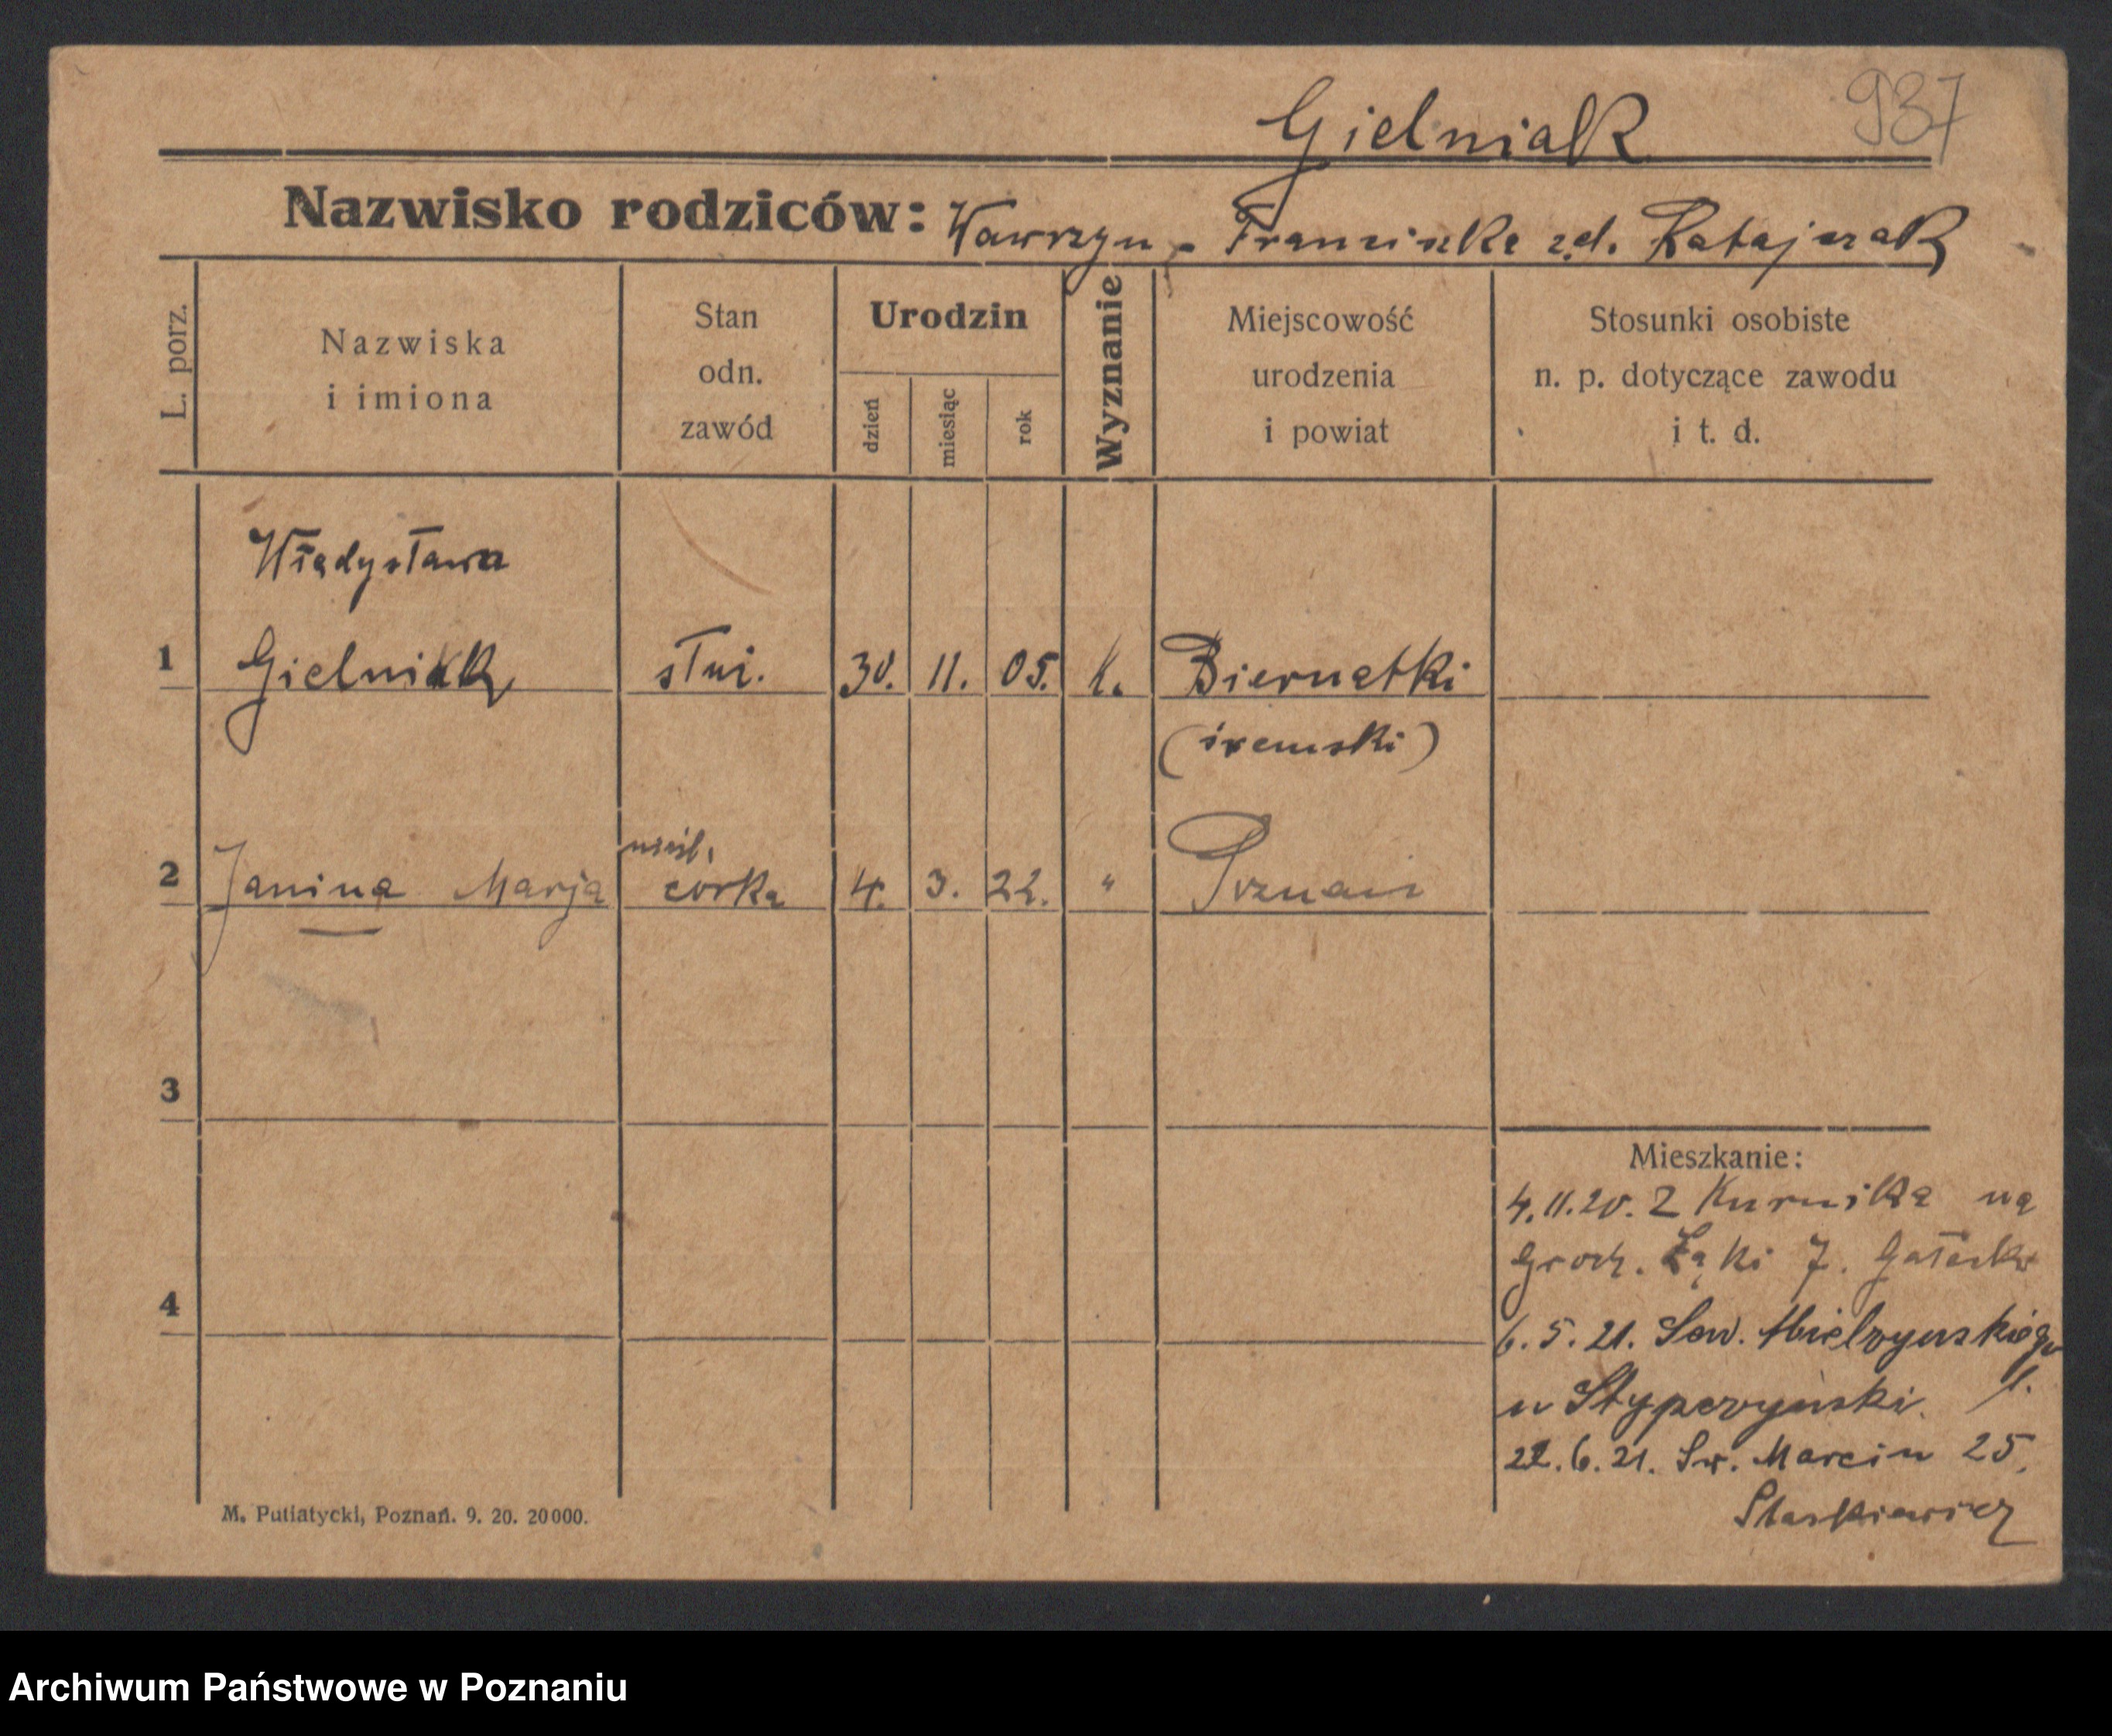 Gielniak 937
Nazwisko rodziców: Wawrzyn - Franciszka zd. Ratajczak
L. porz.
Nazwiska
i imiona
Stan
odn.
zawód
Urodzin
dzień
miesiąc
rok
Wyznanie
Miejscowość
urodzenia
i powiat
Stosunki osobiste
n. p. dotyczące zawodu
i t. d.
Władysława
1 Gielniak służ. 30. 11. 05. k. Biernatki
(śremski)
nieśl.
2 Janina Marja córka 4. 3. 22. " Poznań
3
4
Mieszkanie:
4.11.20. Z Kurnika na
Groch. Łąki 7.
6.5.21. Sew. Mielżyńskiego
u Stypczyński 1.
22.6.21. Św. Marcin 25,
Staśkiewicz
M. Putiatycki, Poznań. 9. 20. 20000.
Archiwum Państwowe w Poznaniu